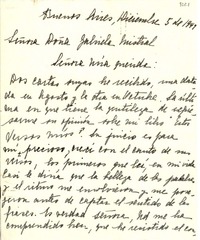 Buenos Aires, Diciembre 5 de 19
Señora Doña Gabriela Mistral
Señora mía querida:
Dos cartas suyas he recibido, una data
da en Agosto y la otra en Octubre. La últi
ma en que tiene la gentileza de expre
sarme su opinión sobre mi libro "Estos
Versos míos". Su juicio es para
mi, precioso, creci con el canto de sus
versos, los primeros que leí en mi vida
Casi le diria que la belleza de las palabras
y el ritmo me envolvieron y me pose
yeron antes de captar el sentido de las
frases. Es verdad señora, Ud me ha
comprendido bien, que he resistido el